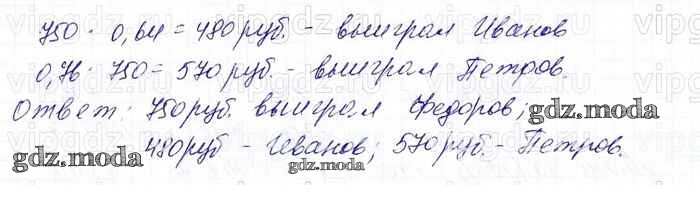 750 · 0,64 = 480 руб. - выиграл Иванов
0,76 · 750 = 570 руб. - выиграл Петров.
Ответ: 750 руб. выиграл Федоров;
gdz.moda
480 руб - Иванов; 570 руб. - Петров.
gdz.moda
gdz.moda